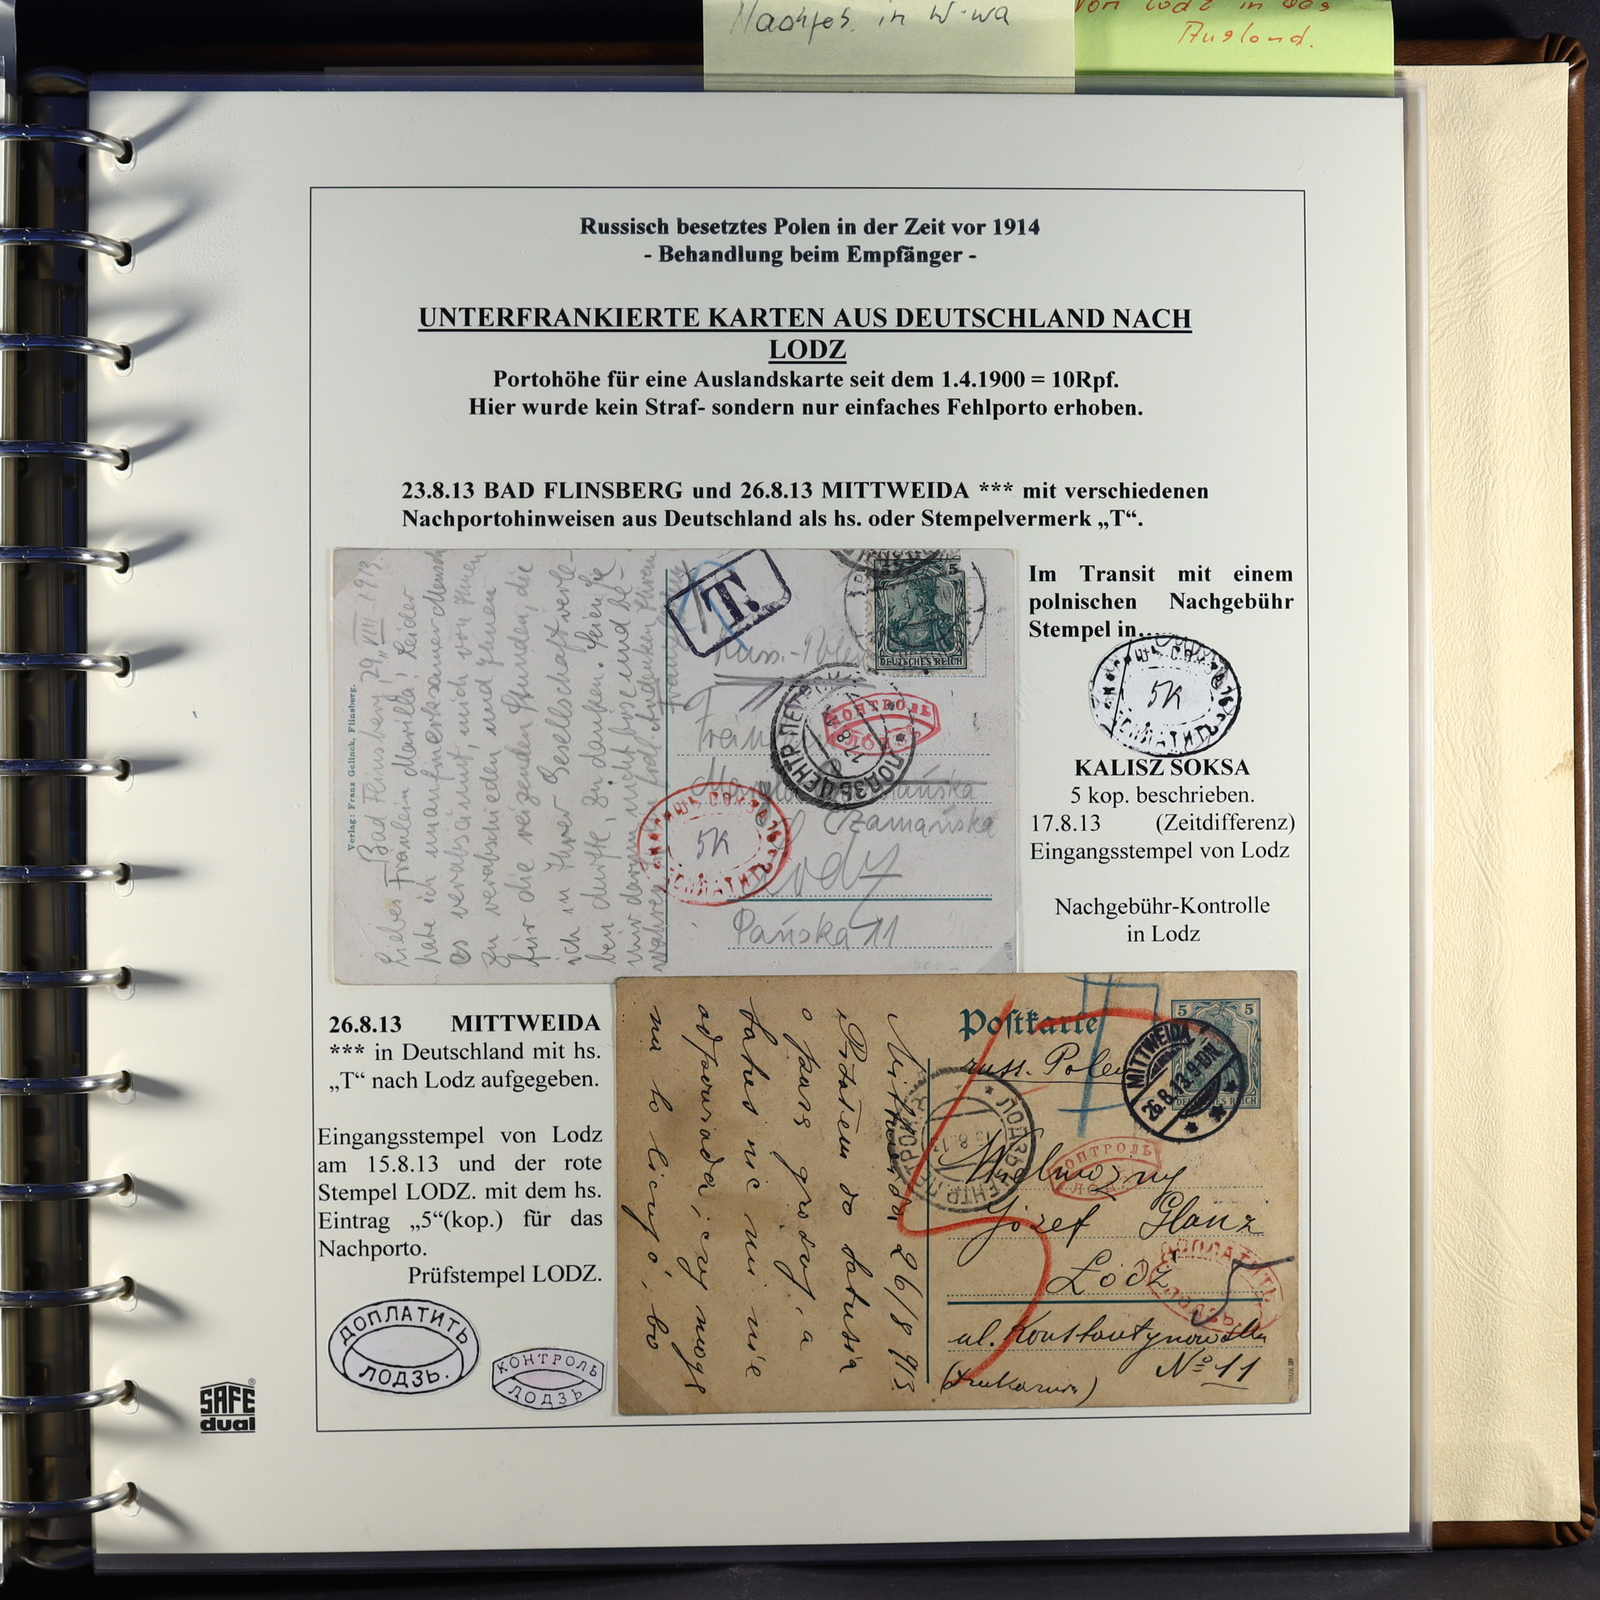 Nachfob. in W-wa
von Lodz in das
Ausland.
Russisch besetztes Polen in der Zeit vor 1914
- Behandlung beim Empfänger -
UNTERFRANKIERTE KARTEN AUS DEUTSCHLAND NACH
LODZ
Portohöhe für eine Auslandskarte seit dem 1.4.1900 = 10Rpf.
Hier wurde kein Straf- sondern nur einfaches Fehlporto erhoben.
23.8.13 BAD FLINSBERG und 26.8.13 MITTWEIDA *** mit verschiedenen
Nachportohinweisen aus Deutschland als hs. oder Stempelvermerk „T“.
Verlag: Franz Gelinek, Flinsberg.
Bad Flinsberg, 29. VIII. 1913.
Liebes Fräulein Marilla! Leider
habe ich unaufmerksamer Mensch
es versäumt, mich von Ihnen
zu verabschieden und Ihnen
für die reizenden Stunden, die
ich in Ihrer Gesellschaft verle-
ben durfte, zu danken. Seien Sie
mir darum nicht böse und be-
wahren
T.
5
DEUTSCHES REICH
Russ.-Polen
КОНТРОЛЬ
ЛОДЗЬ
ЛОДЗЬ ЦЕНТР. ПЕТРОК.
5K
Czamańska
Lodz
Pańska 11
Im Transit mit einem
polnischen Nachgebühr
Stempel in…
5K
KALISZ SOKSA
5 kop. beschrieben.
17.8.13 (Zeitdifferenz)
Eingangsstempel von Lodz
Nachgebühr-Kontrolle
in Lodz
26.8.13 MITTWEIDA
*** in Deutschland mit hs.
„T“ nach Lodz aufgegeben.
Eingangsstempel von Lodz
am 15.8.13 und der rote
Stempel LODZ. mit dem hs.
Eintrag „5“(kop.) für das
Nachporto.
Prüfstempel LODZ.
ДОПЛАТИТЬ
ЛОДЗЬ.
КОНТРОЛЬ
ЛОДЗЬ
Postkarte
5 5
DEUTSCHES REICH
MITTWEIDA
26.8.13.9-10N.
russ. Polen
ЛОДЗЬ ЦЕНТР. ПЕТРОК.
КОНТРОЛЬ
ЛОДЗЬ
Wielmożny
Józef Glanz
Łódź
ДОПЛАТИТЬ
ЛОДЗЬ.
5
ul. Konstantynowska
No 11
(Drukarnia)
Mittweida 26/8 913
SAFE
dual